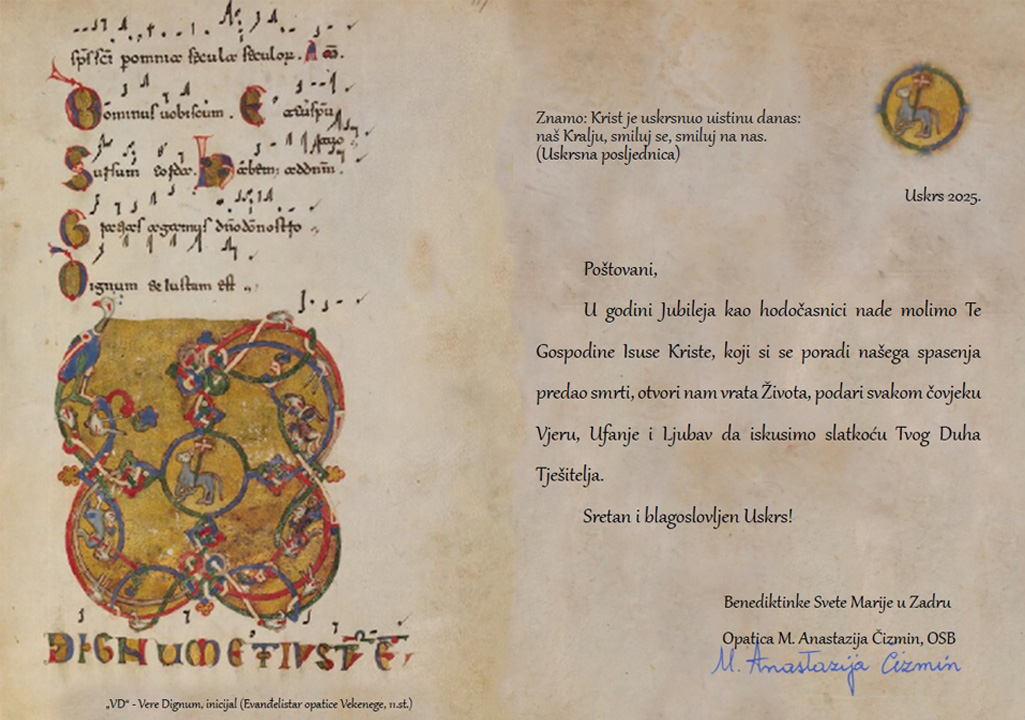 secula seculor.
Dominus uobiscum. Et cū spū
Sursum corda. Habem; addnm.
Gratias agamus dño dō nostro
Dignum & iustum est
DIGNUM ET IUST Ē
„VD“ - Vere Dignum, inicijal (Evanđelistar opatice Vekenege, 11.st.)
Znamo: Krist je uskrsnuo uistinu danas:
naš Kralju, smiluj se, smiluj na nas.
(Uskrsna posljednica)
Uskrs 2025.
Poštovani,
U godini Jubileja kao hodočasnici nade molimo Te
Gospodine Isuse Kriste, koji si se poradi našega spasenja
predao smrti, otvori nam vrata Života, podari svakom čovjeku
Vjeru, Ufanje i Ljubav da iskusimo slatkoću Tvog Duha
Tješitelja.
Sretan i blagoslovljen Uskrs!
Benediktinke Svete Marije u Zadru
Opatica M. Anastazija Čizmin, OSB
M. Anastazija Čizmin